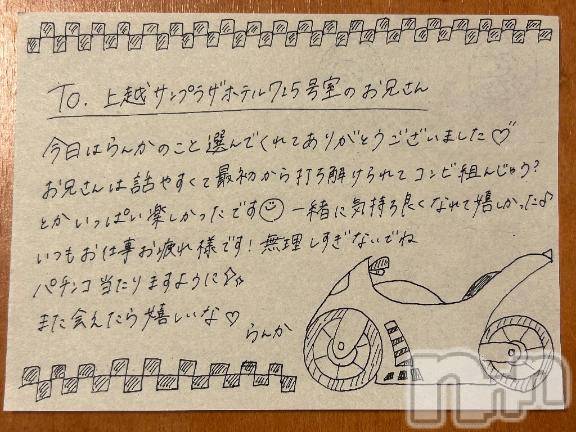 To. 上越サンプラザホテル725号室のお兄さん
今日はらんかのこと選んでくれてありがとうございました♡
お兄さんは話やすくて最初から打ち解けられてコンビ組んじゃう?
とかいっぱい楽しかったです☺ 一緒に気持ち良くなれて嬉しかった♪
いつもお仕事お疲れ様です!無理しすぎないでね
パチンコ当たりますように☆
また会えたら嬉しいな♡
らんか